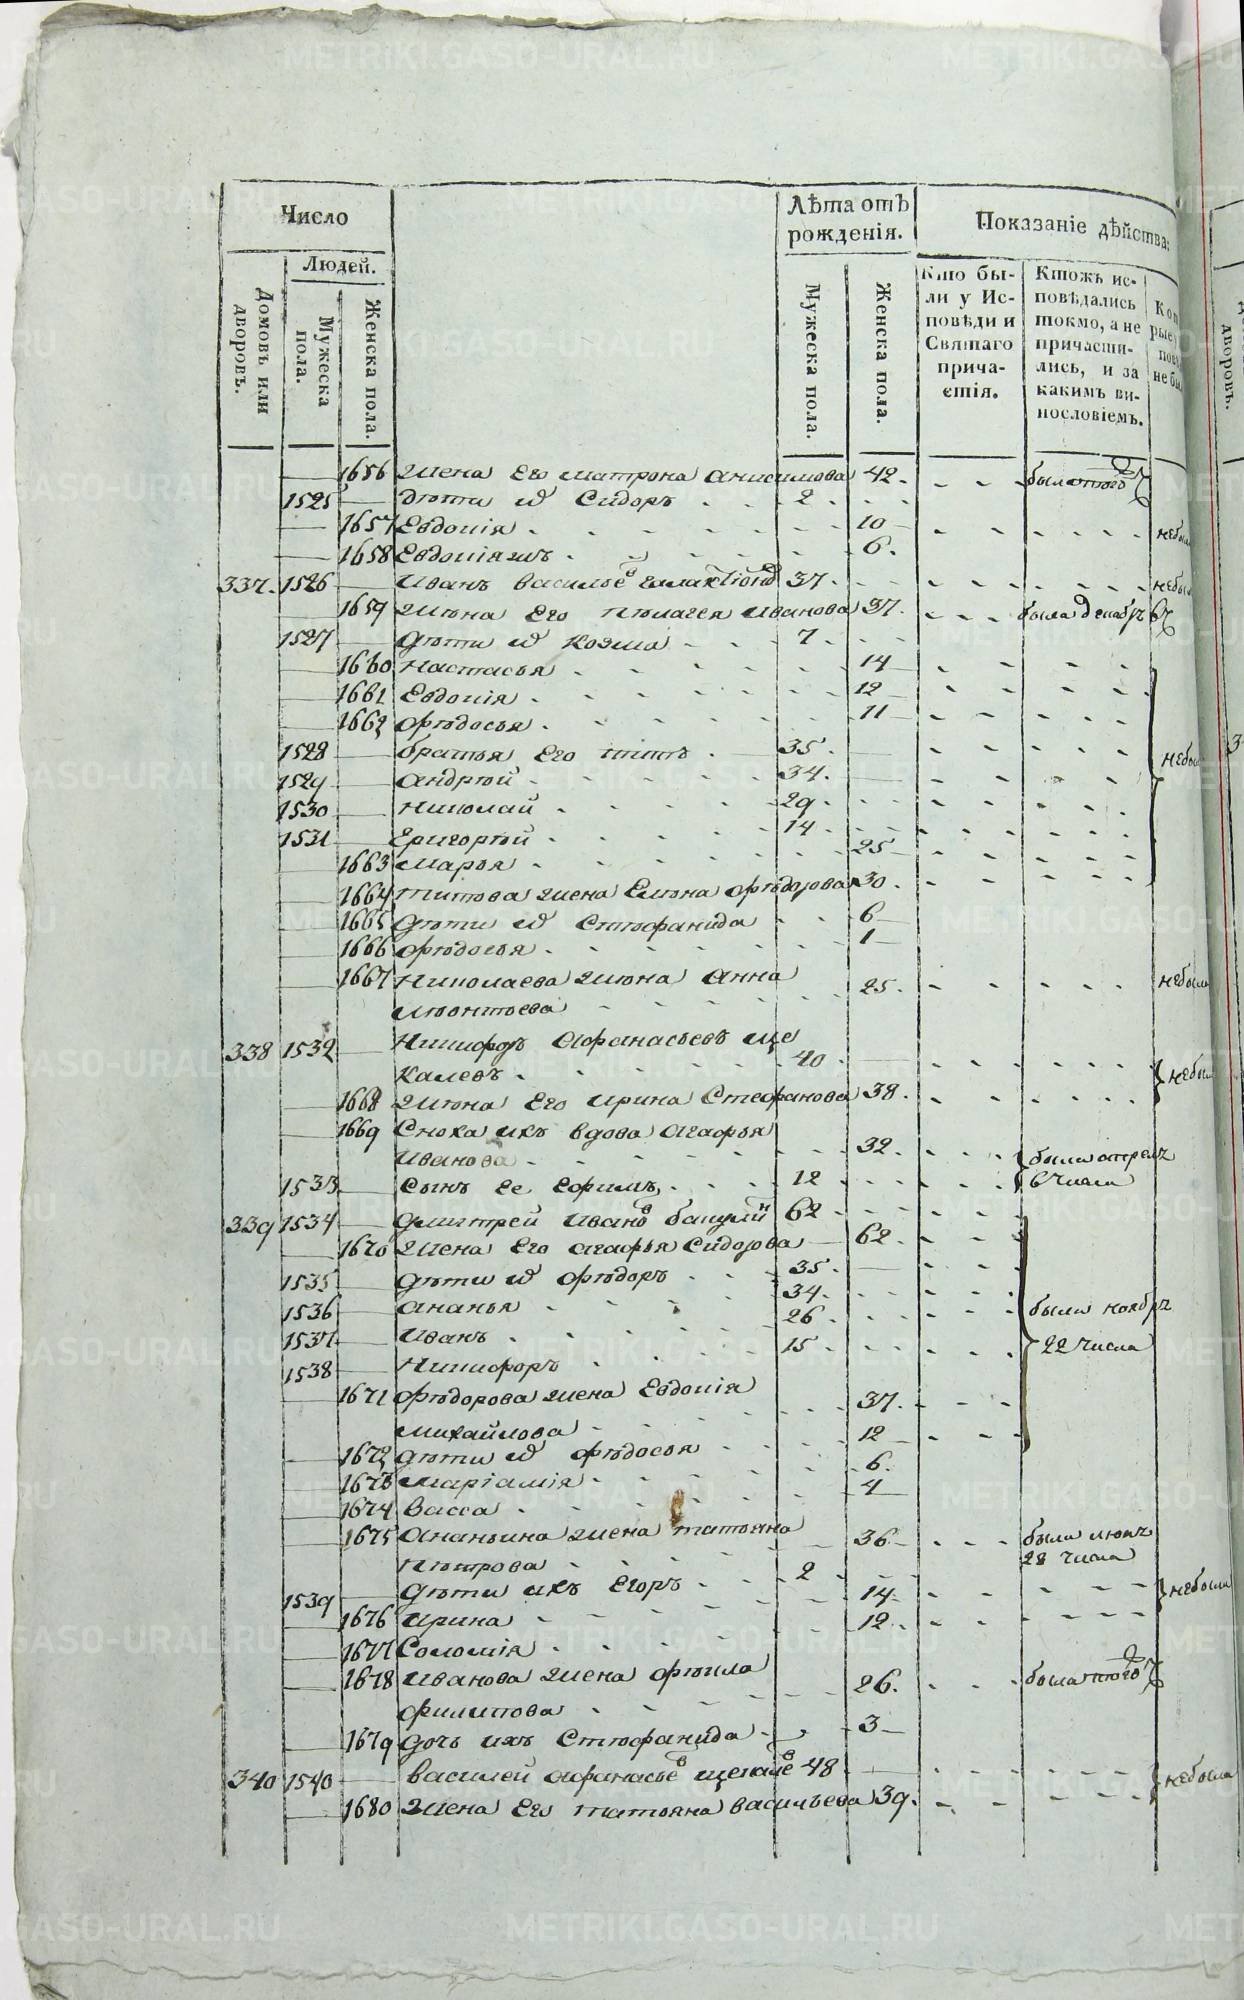 Число
Лѣта отъ рожденія.
Показаніе дѣйства:
Людей.
Домовъ или дворовъ.
Мужеска пола.
Женска пола.
Мужеска пола.
Женска пола.
Кто бы-
ли у Ис-
повѣди и
Святаго
прича-
стія.
Ктожъ ис-
повѣдались
токмо, а не
причасти-
лись, и за
какимъ ви-
нословіемъ.
1656 жена Его матрона анисимова 42. была того ж
1525 дѣти и҃ Сидоръ 2
1657 Евдокія 10
1658 Евдокіяжъ 6.
337. 1526 Иванъ василье галактіонов 37.
1659 жена Его Пелагея иванова 37. была декабрь 6
1527 дѣти Козма 7
1660 Настасья 14
1661 Евдокія 12
1662 Ѳедосья 11
1528 братья Его титъ 35.
1529 андрей 34.
1530 Николай 29.
1531 Григорей 14
1663 марья 25
1664 титова жена Елена Федорова 30.
1665 дѣти Стефанида 6
1666 федосья 1
1667 Николаева жена анна
леонтьева 25.
338 1532 Никифоръ Афанасьевъ ще
калевъ 40
1668 жена Его ирина Стефанова 38.
1669 Сноха ихъ вдова агафья
иванова 32. были апрель
1533 сынъ Ее Ефимъ 12 6 числа
339 1534 дмитрей Ивано 62
1670 жена Его агафья Сидорова 62.
1535 дѣти федоръ 35.
1536 ананья 34.
1537 Иванъ 26 были ноябрь
1538 Никифоръ 15 22 числа
1671 федорова жена Евдокія
михайлова 37.
1672 дѣти федосья 12
1673 маріамія 6.
1674 васса 4
1675 Ананьина жена татьяна
Петрова 36. была июнь
28 числа
1539 дѣти ихъ Егоръ 2
1676 ирина 14
1677 Соломія 12
1678 Иванова жена фекла
филипова 26. была того ж
1679 дочь ихъ Стефанида 3
340 1540 василей афанасье щекале 48
1680 жена Его татьяна васильева 39.